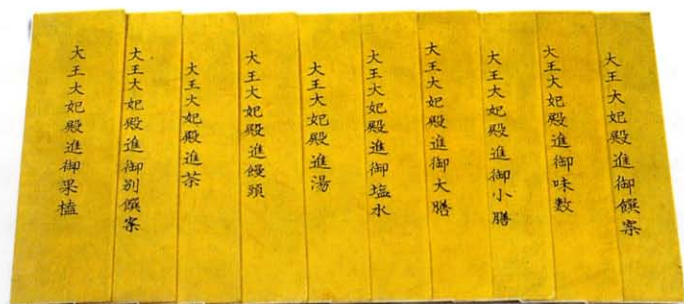 大王大妃殿進御饌案
大王大妃殿進御味數
大王大妃殿進御小膳
大王大妃殿進御大膳
大王大妃殿進御塩水
大王大妃殿進湯
大王大妃殿進饅頭
大王大妃殿進茶
大王大妃殿進御別饌案
大王大妃殿進御果榼